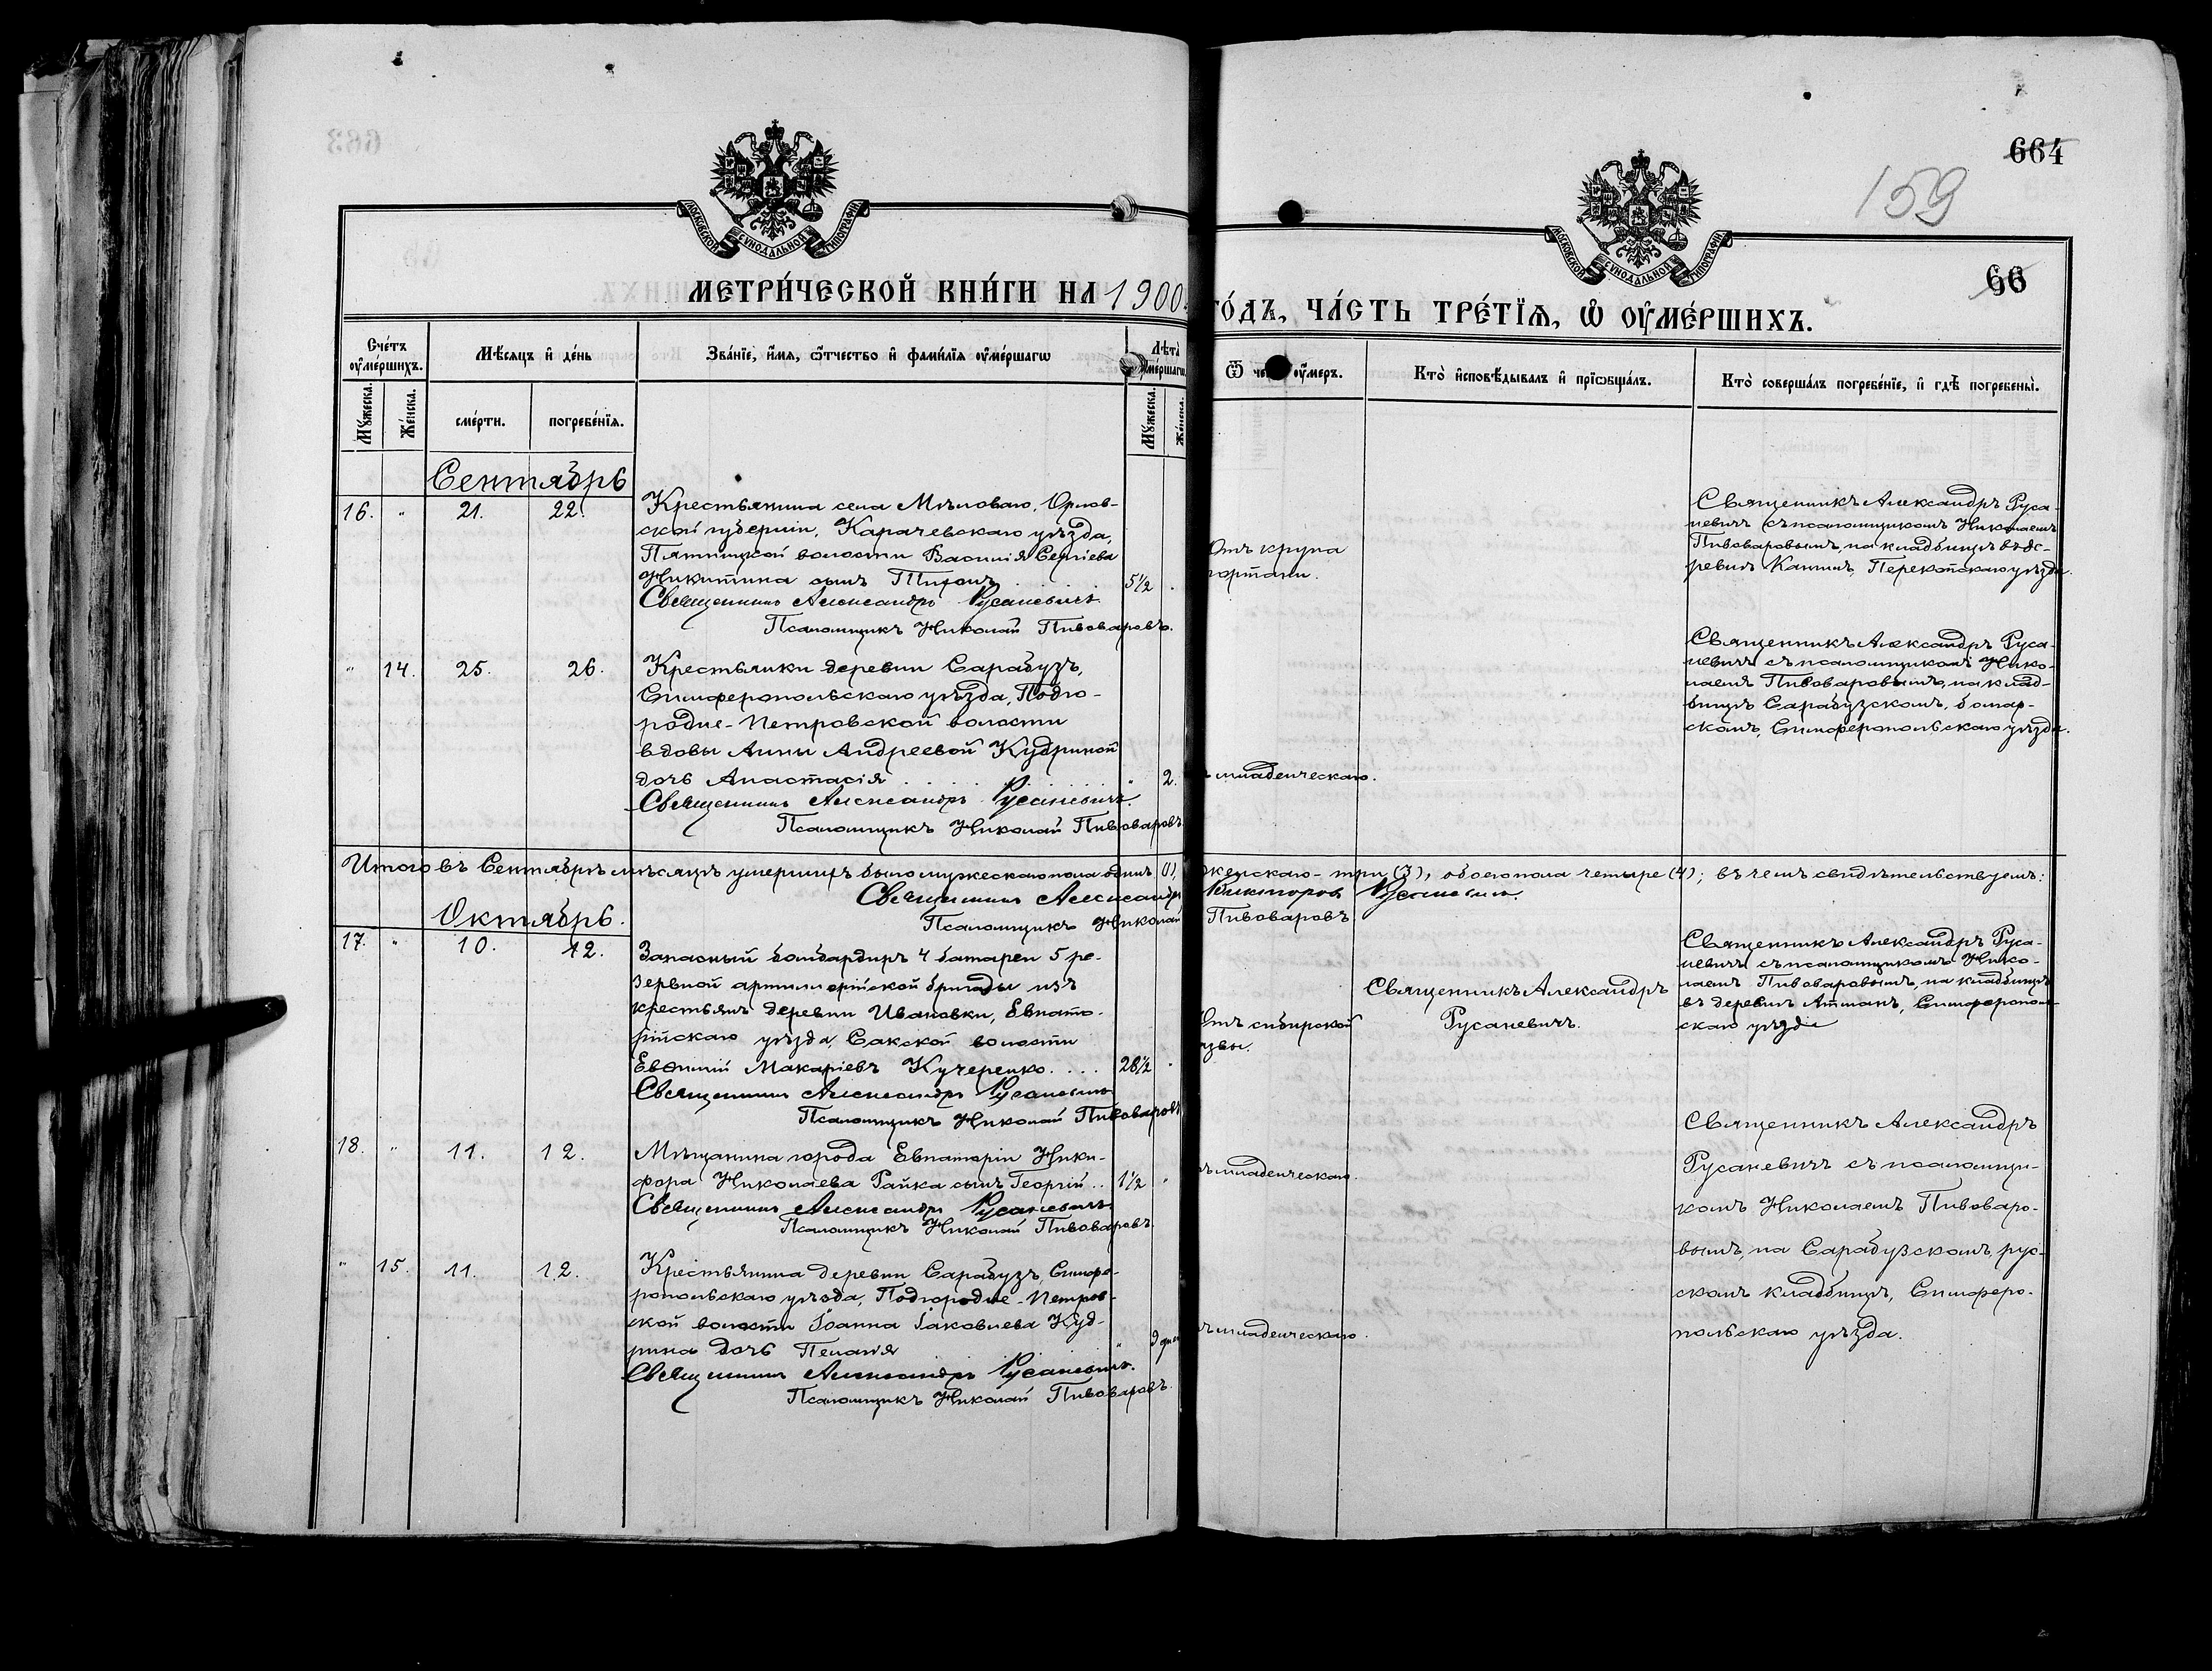 664
159
66
МОСКОВСКОЙ СУНОДАЛЬНОЙ ТИПОГРАФІИ
МОСКОВСКОЙ СУНОДАЛЬНОЙ ТИПОГРАФІИ
МЕТРИ́ЧЕСКОЙ КНИ́ГИ НА 1900
ГО́ДЪ, ЧА́СТЬ ТРЕ́ТЇѦ, Ѡ҆ ОУ҆МЕ́РШИХЪ.
Сче́тъ оу҆ме́ршихъ.
Мѣ́сяцъ и҆ де́нь
Зва́нїе, и҆́мя, ѻ҆́тчество и҆ фами́лїя оу҆ме́ршагѡ
Лѣ́та оу҆ме́ршагѡ
Ѿ чегѡ̀ оу҆́меръ.
Кто̀ и҆сповѣ́дывалъ и҆ прїѡбща́лъ.
Кто̀ соверша́лъ погребе́нїе, и҆ гдѣ̀ погребены̀.
Мꙋ́жеска.
Же́нска.
сме́рти.
погребе́нїя.
Мꙋ́жеска.
Же́нска.
Сентябрь
16. " 21. 22.
Крестьянина села Мѣловаго, Орлов-
ской губерніи, Карачевскаго уѣзда,
Пятницкой волости Василія Сергіева
Никитина сынъ Тихонъ 5½
Священникъ Александръ Русаневичъ.
Псаломщикъ Николай Пивоваровъ.
Отъ крупа
гортани.
Священникъ Александръ Руса-
невичъ съ псаломщикомъ Николаемъ
Пивоваровымъ, на кладбищѣ въ де-
ревнѣ Перекопскаго уѣзда.
" 14. 25. 26.
Крестьянки деревни Сарабузъ,
Симферопольскаго уѣзда, Подго-
родне-Петровской волости
вдовы Анны Андреевой Кудриной
дочь Анастасія " 2.
Священникъ Александръ Русаневичъ.
Псаломщикъ Николай Пивоваровъ.
младенческаго.
Священникъ Александръ Руса-
невичъ съ псаломщикомъ Нико-
лаемъ Пивоваровымъ, на клад-
бищѣ Сарабузскомъ, болгар-
скомъ, Симферопольскаго уѣзда.
Итого въ Сентябрѣ мѣсяцѣ умершихъ было мужескаго пола одинъ (1), женскаго - три (3), обоего пола четыре (4); въ чемъ свидѣтельствуемъ:
Священникъ Александръ Викторовъ Русаневичъ.
Псаломщикъ Николай Пивоваровъ
Октябрь.
17. " 10. 12.
Запасный бомбардиръ 4 батареи 5 ре-
зервной артиллерійской бригады изъ
крестьянъ деревни Ивановки, Евпато-
рійскаго уѣзда, Сакской волости
Евѳимій Макаріевъ Кучеренко. 28½ "
Священникъ Александръ Русаневичъ
Псаломщикъ Николай Пивоваровъ
Отъ сибирской
язвы.
Священникъ Александръ
Русаневичъ.
Священникъ Александръ Руса-
невичъ съ псаломщикомъ Нико-
лаемъ Пивоваровымъ, на кладбищѣ
въ деревнѣ Атманъ, Симферополь-
скаго уѣзда
18. " 11. 12.
Мѣщанина города Евпаторіи Ники-
фора Николаева Райка сынъ Георгій.. 1½ "
Священникъ Александръ Русаневичъ
Псаломщикъ Николай Пивоваровъ
младенческаго.
Священникъ Александръ
Русаневичъ съ псаломщи-
комъ Николаемъ Пивоваро-
вымъ, на Сарабузскомъ, рус-
скомъ кладбищѣ, Симферо-
польскаго уѣзда.
" 15. 11. 12.
Крестьянина деревни Сарабузъ, Симфе-
ропольскаго уѣзда, Подгородне-Петров-
ской волости Іоанна Іаковлева Куд-
рина дочь Пелагія " 9 дней
Священникъ Александръ Русаневичъ.
Псаломщикъ Николай Пивоваровъ.
младенческаго.